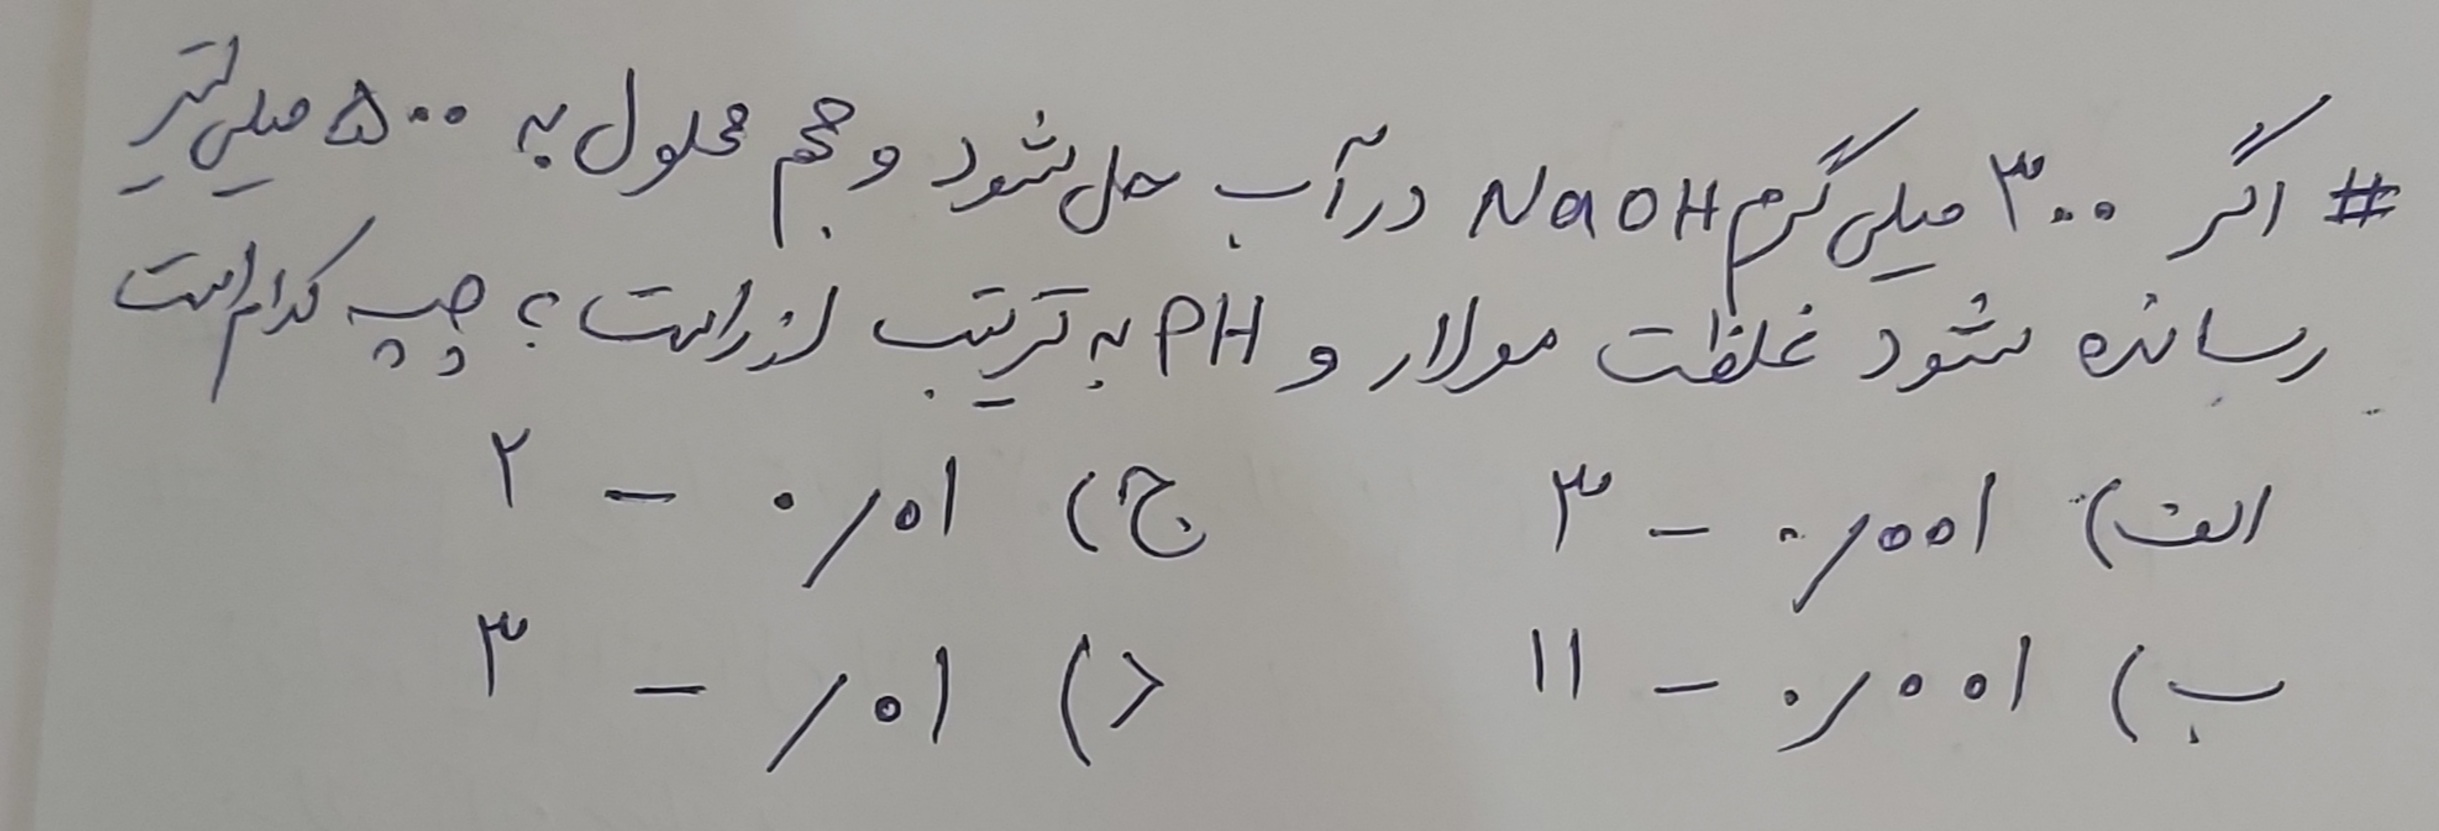 # اگر ۳۰۰ میلی گرم NaOH در آب حل شود و حجم محلول به ۵۰۰ میلی لیتر
رسانده شود غلظت مولار و PH به ترتیب از راست ؟ چپ کدام است
الف) ۰/۰۰۱ - ۳ ج) ۰/۰۱ - ۲
ب) ۰/۰۰۱ - ۱۱ د) /۰۱ - ۳